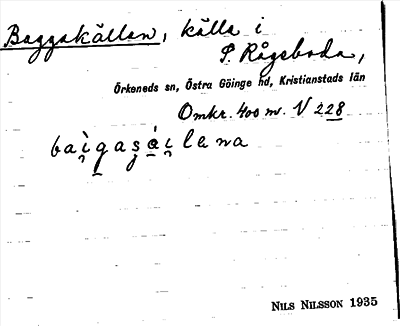 Baggakällan, källa i
S. Rågeboda,
Örkeneds sn, Östra Göinge hd, Kristianstads län
Omkr. 400 m. V 228
NILS NILSSON 1935